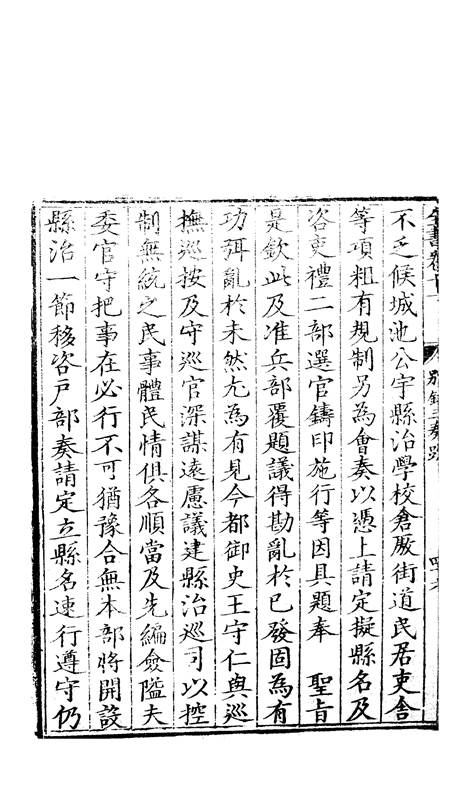 全書卷十一　別錄三奏疏
不乏候城池公宇縣治學校倉厫街道民居吏舍
等項粗有規制另為會奏以憑上請定擬縣名及
咨吏禮二部選官鑄印施行等因具題奉　聖旨
是欽此及准兵部覆題議得勘亂於已發固為有
功弭亂於未然尤為有見今都御史王守仁與巡
撫巡按及守巡官深謀遠慮議建縣治巡司以控
制無統之民事體民情俱各順當及先編僉隘夫
委官守把事在必行不可猶豫合無本部將開設
縣治一節移咨戶部奏請定立縣名速行遵守仍